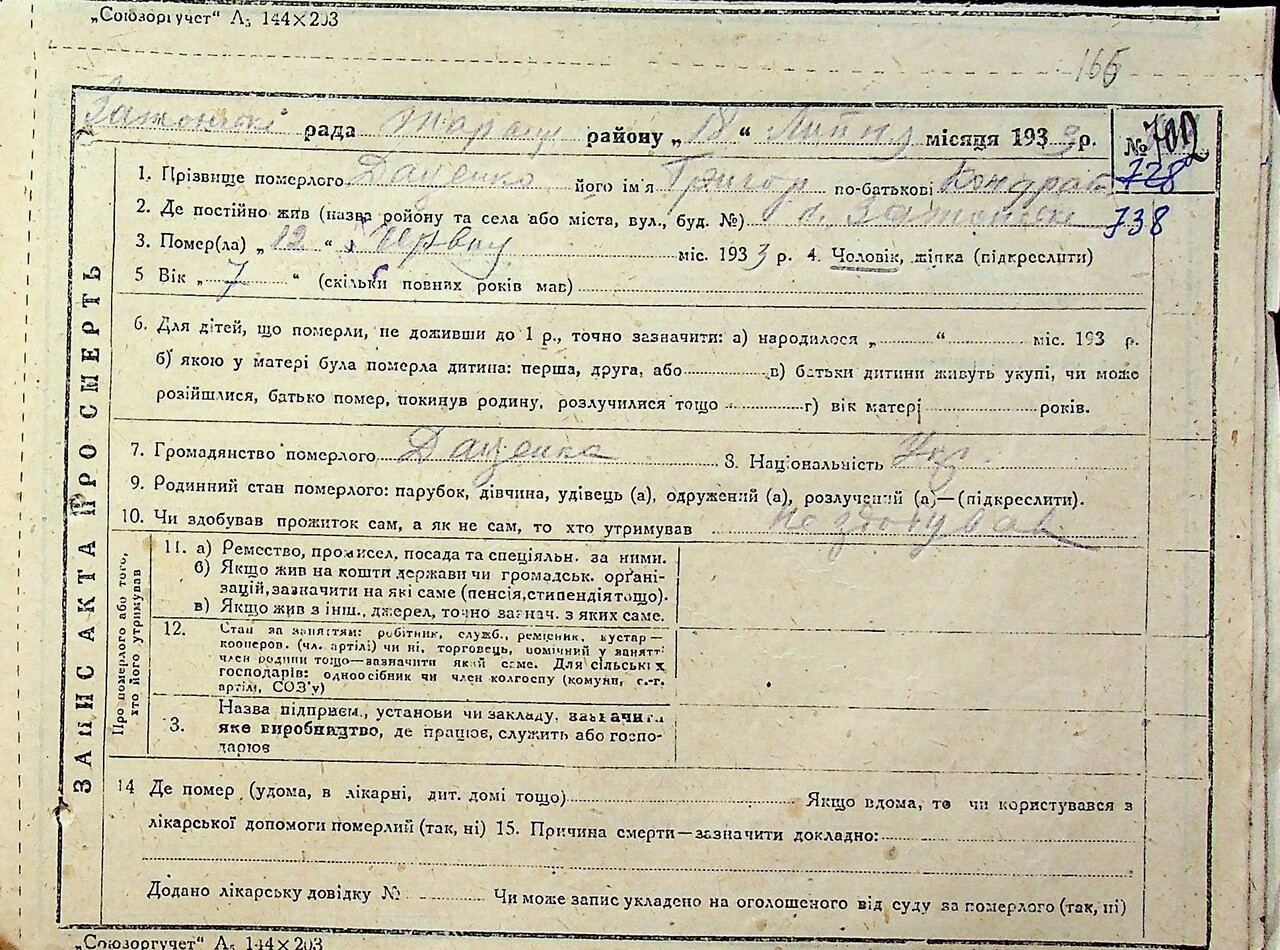 „Союзоргучет“ А₅ 144×203
166
рада район у „18“ Липня місяця 1933 р. № 702
728
1. Прізвище померлого Даценко його ім'я Григор по-батькові Кондрат
2. Де постійно жив (назва району та села або міста, вул., буд. №) с.
738
3. Помер(ла) „12“ Червня міс. 1933 р. 4. Чоловік, жінка (підкреслити)
5 Вік „7“ (скільки повних років мав)
6. Для дітей, що померли, не доживши до 1 р., точно зазначити: а) народилося „ “ міс. 193 р.
б) якою у матері була померла дитина: перша, друга, або в) батьки дитини живуть укупі, чи може
розійшлися, батько помер, покинув родину, розлучилися тощо г) вік матері років.
7. Громадянство померлого Даценка 8. Національність Укр.
9. Родинний стан померлого: парубок, дівчина, удівець (а), одружений (а), розлучений (а)—(підкреслити).
10. Чи здобував прожиток сам, а як не сам, то хто утримував не здобував
ЗАПИС АКТА ПРО СМЕРТЬ
Про померлого або того, хто його утримував
11. а) Ремество, промисел, посада та спеціяльн. за ними.
б) Якщо жив на кошти держави чи громадськ. орґані-
зацій, зазначити на які саме (пенсія, стипендія тощо).
в) Якщо жив з інш. джерел, точно зазнач. з яких саме.
12. Стан за заняттям: робітник, служб., ремісник, кустар—
кооперов. (чл. артілі) чи ні, торговець, помічний у занятт.
член родини тощо—зазначити який саме. Для сільських
господарів: одноосібник чи член колгоспу (комуни, с.-г.
артілі, СОЗ'у)
3. Назва підприєм., установи чи закладу, зазначити
яке виробництво, де працює, служить або госпо-
дарює
14 Де помер (удома, в лікарні, дит. домі тощо) Якщо вдома, то чи користувався з
лікарської допомоги померлий (так, ні) 15. Причина смерти—зазначити докладно:
Додано лікарську довідку № Чи може запис укладено на оголошеного від суду за померлого (так, ні)
„Союзоргучет“ А₅ 144×203